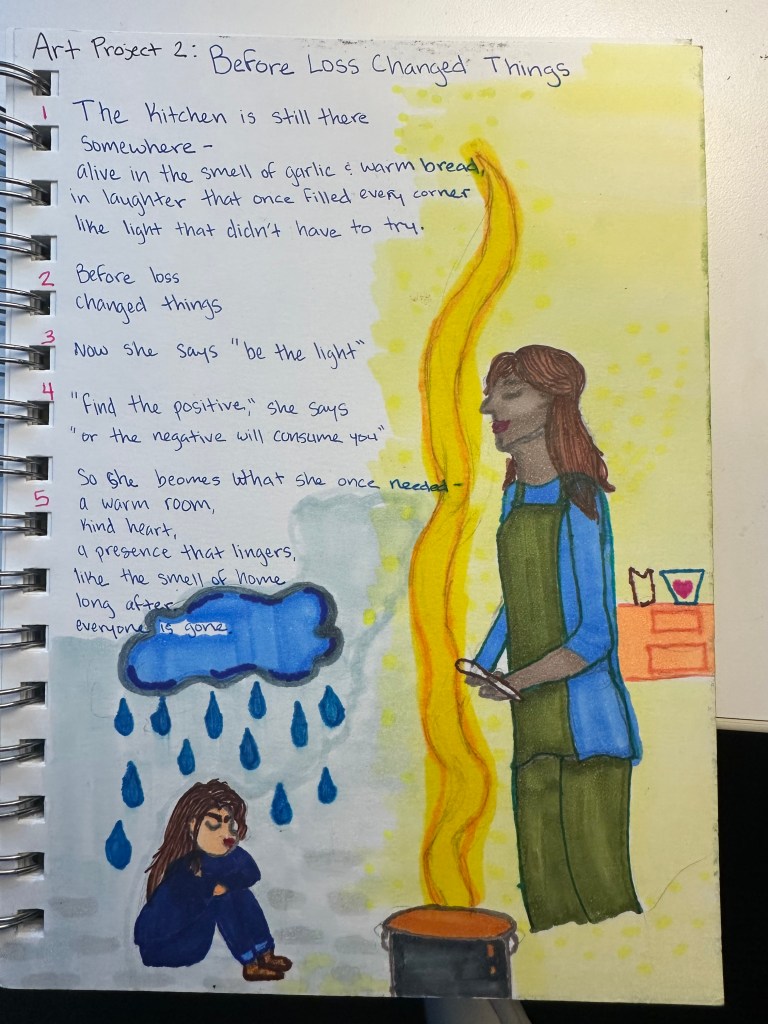 Art Project 2: Before Loss Changed Things
1 The Kitchen is still there
somewhere -
alive in the smell of garlic & warm bread,
in laughter that once filled every corner
like light that didn't have to try.
2 Before loss
changed things
3 Now she says "be the light"
4 "find the positive," she says
"or the negative will consume you"
So she beomes what she once needed -
5 a warm room,
kind heart,
a presence that lingers,
like the smell of home
long after
everyone is gone.